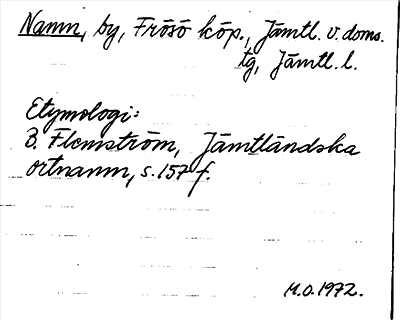 Namn, by, Frösö köp., Jämtl. v. doms.
tg, Jämtl. l.
Etymologi:
B. Flemström, Jämtländska
ortnamn, s. 157 f.
M.O. 1972.